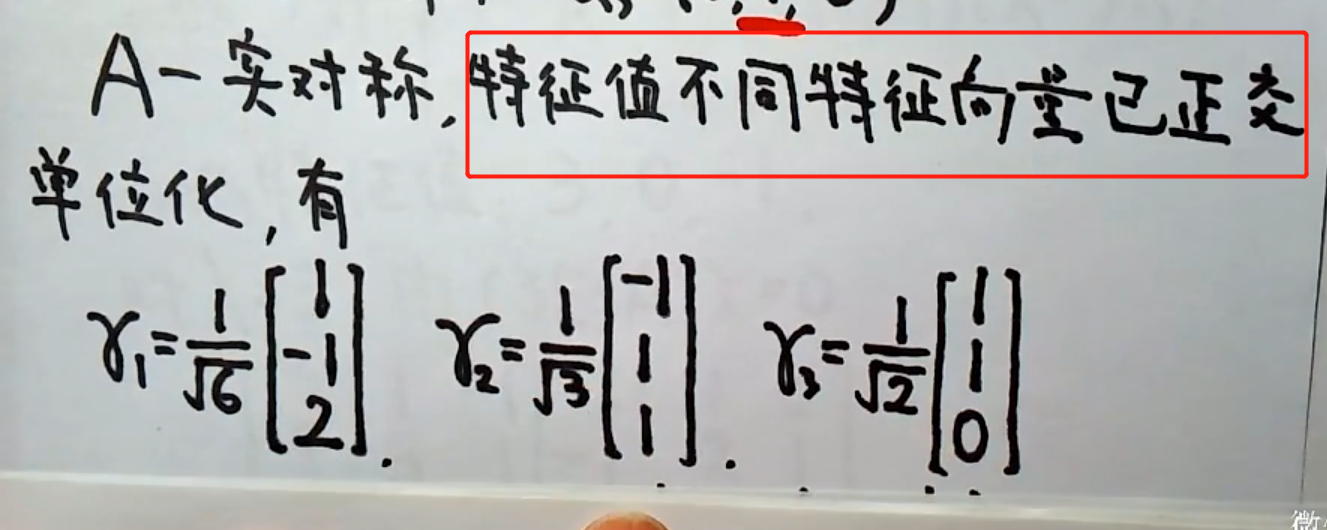 A-实对称,特征值不同特征向量已正交
单位化,有
γ₁=1/√6[1 -1 2]. γ₂=1/√3[-1 1 1]. γ₃=1/√2[1 1 0]
微